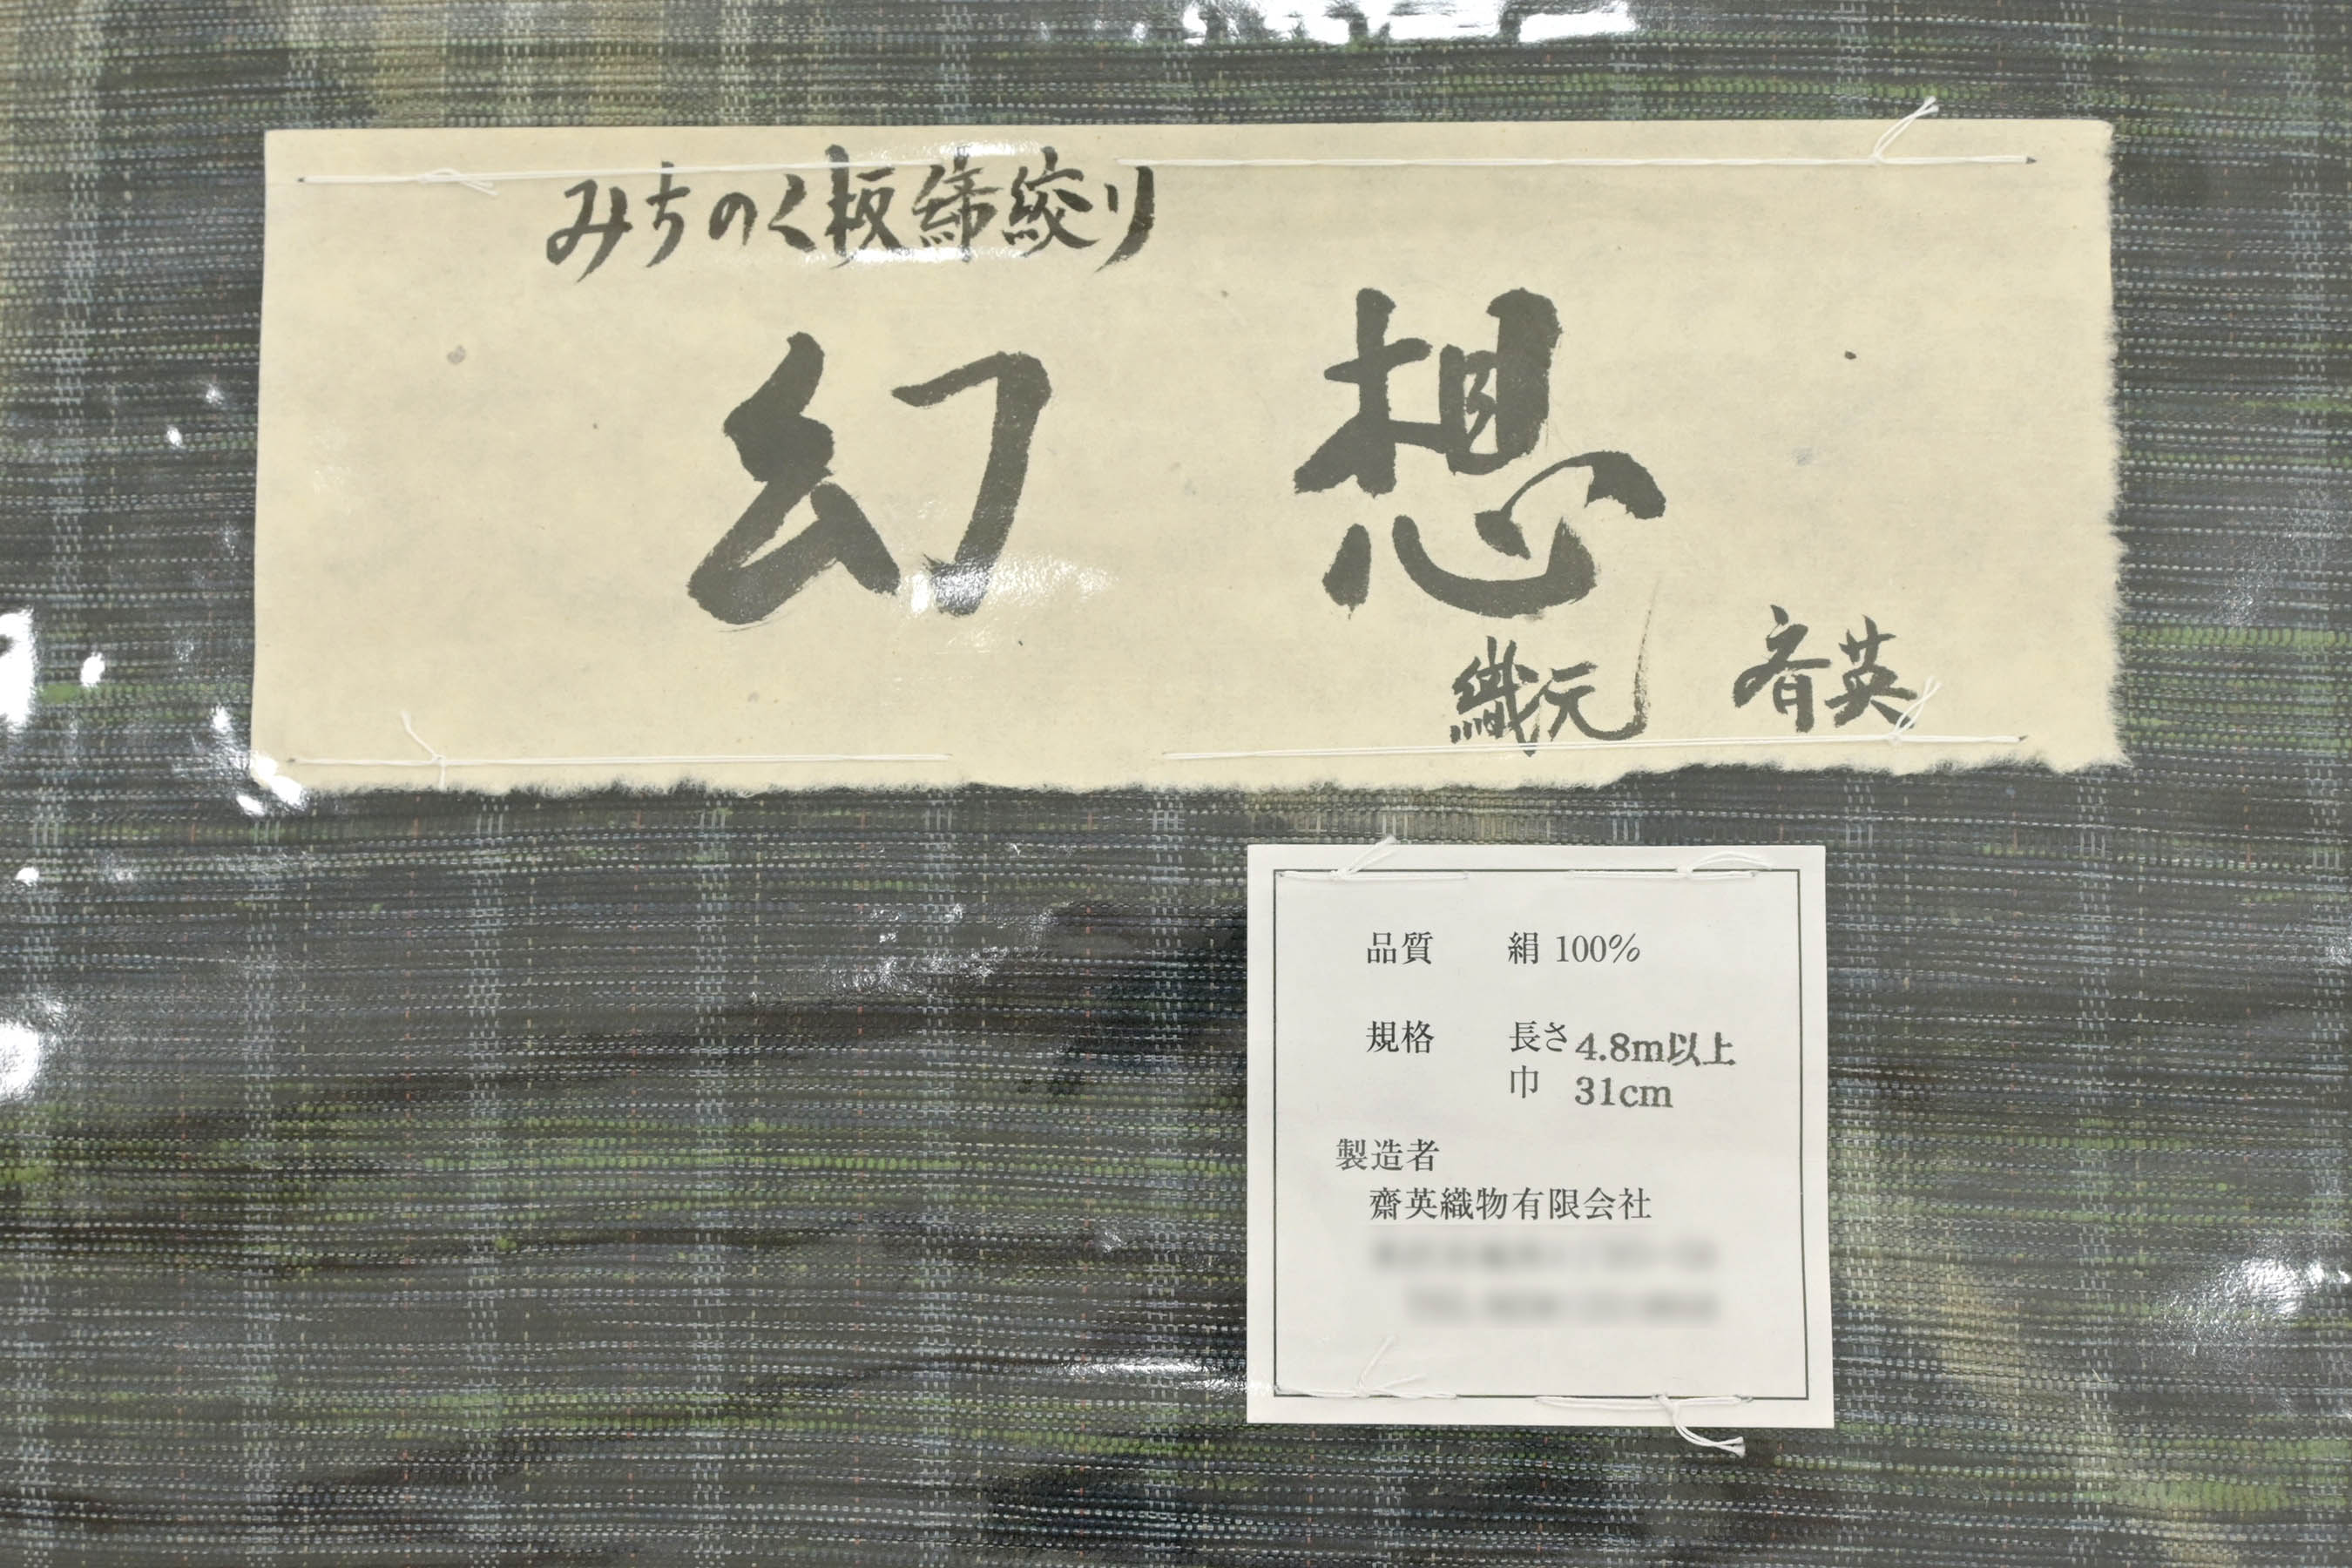 みちのく板締絞り
幻想
織元 斉英
品質 絹 100%
規格 長さ 4.8m以上
巾 31cm
製造者
齋英織物有限会社